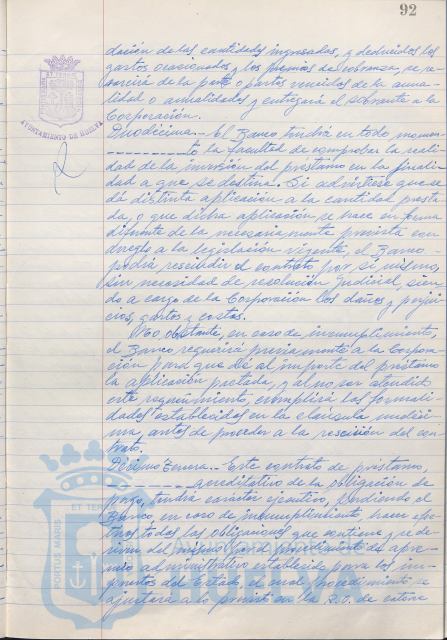 92
dación de las cantidades ingresadas, y deducidos los
gastos ocasionados y los premios de cobranza, se re-
sarcirá de la parte o partes vencidas de la anua-
lidad o anualidades y entregará el sobrante a la
Corporación.
AYUNTAMIENTO DE HUELVA
Duodécima.- El Banco tendrá en todo momen-
to la facultad de comprobar la reali-
dad de la inversión del préstamo en la finali-
dad a que se destina. Si advirtiese que se
dá distinta aplicación a la cantidad presta
da, o que dicha aplicación se hace en forma
diferente de la necesariamente prevista con
arreglo a la legislación vigente, el Banco
podrá rescindir el contrato por sí mismo,
sin necesidad de resolución Judicial, sien
do a cargo de la Corporación los daños y perjui
cios, gastos y costas.
No obstante, en caso de incumplimiento,
el Banco requerirá previamente a la Corpora
ción para que dé al importe del préstamo
la aplicación pactada, y al no ser atendido
este requerimiento, cumplirá las formali-
dades establecidas en la cláusula undéci
ma, antes de proceder a la rescisión del con
trato.
Décimo Tercera.- Este contrato de préstamo,
acreditativo de la obligación de
pago, tendrá carácter ejecutivo, pudiendo el
Banco, en caso de incumplimiento, hacer efec
tivas todas las obligaciones que contiene y se de
rivan del mismo por el procedimiento de apre
mio administrativo establecido para los im-
puestos del Estado, el cual procedimiento se
ajustará a lo previsto en la R.O. de catorce
PORTUS MARIS ET TERRAE
HUELVA